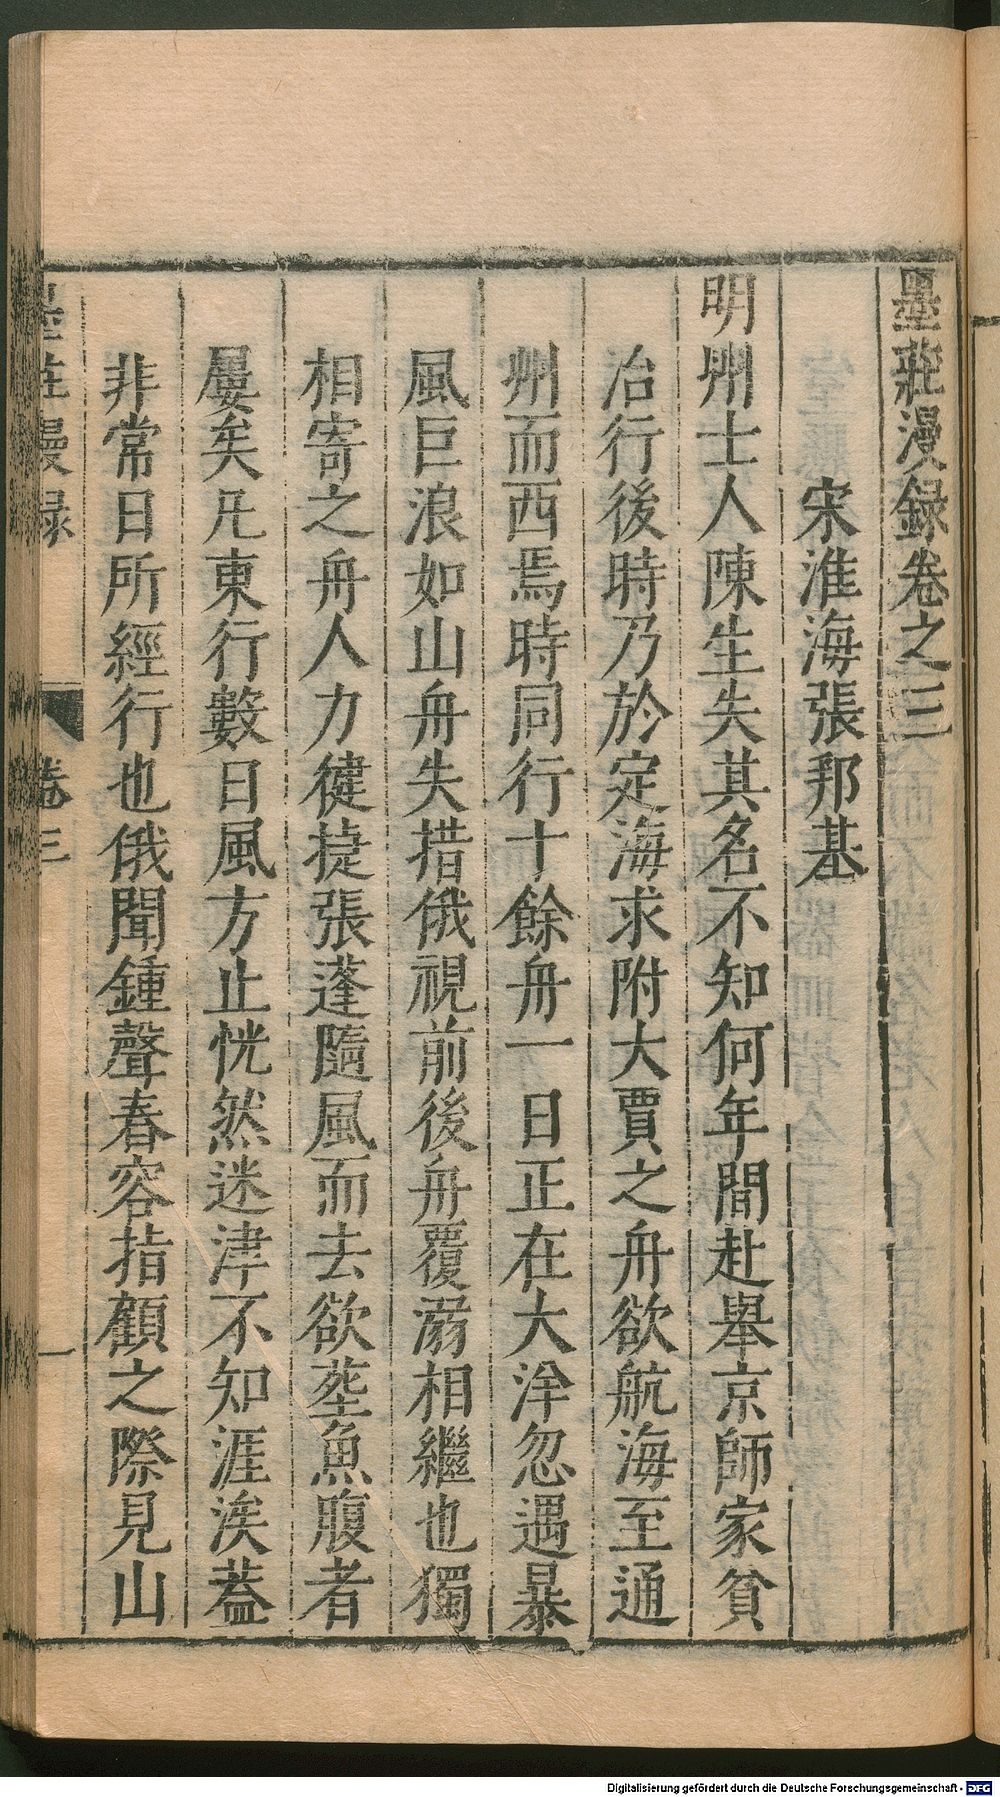 墨莊漫録卷之三
宋淮海張邦基
明州士人陳生失其名不知何年間赴舉京師家貧
治行後時乃於定海求附大賈之舟欲航海至通
州而西焉時同行十餘舟一日正在大洋忽遇暴
風巨浪如山舟失措俄視前後舟覆溺相繼也獨
相寄之舟人力健捷張蓬隨風而去欲塟魚腹者
屢矣凡東行數日風方止恍然迷津不知涯涘葢
非常日所經行也俄聞鍾聲舂容指顧之際見山
墨莊漫録 卷三 一
Digitalisierung gefördert durch die Deutsche Forschungsgemeinschaft - DFG